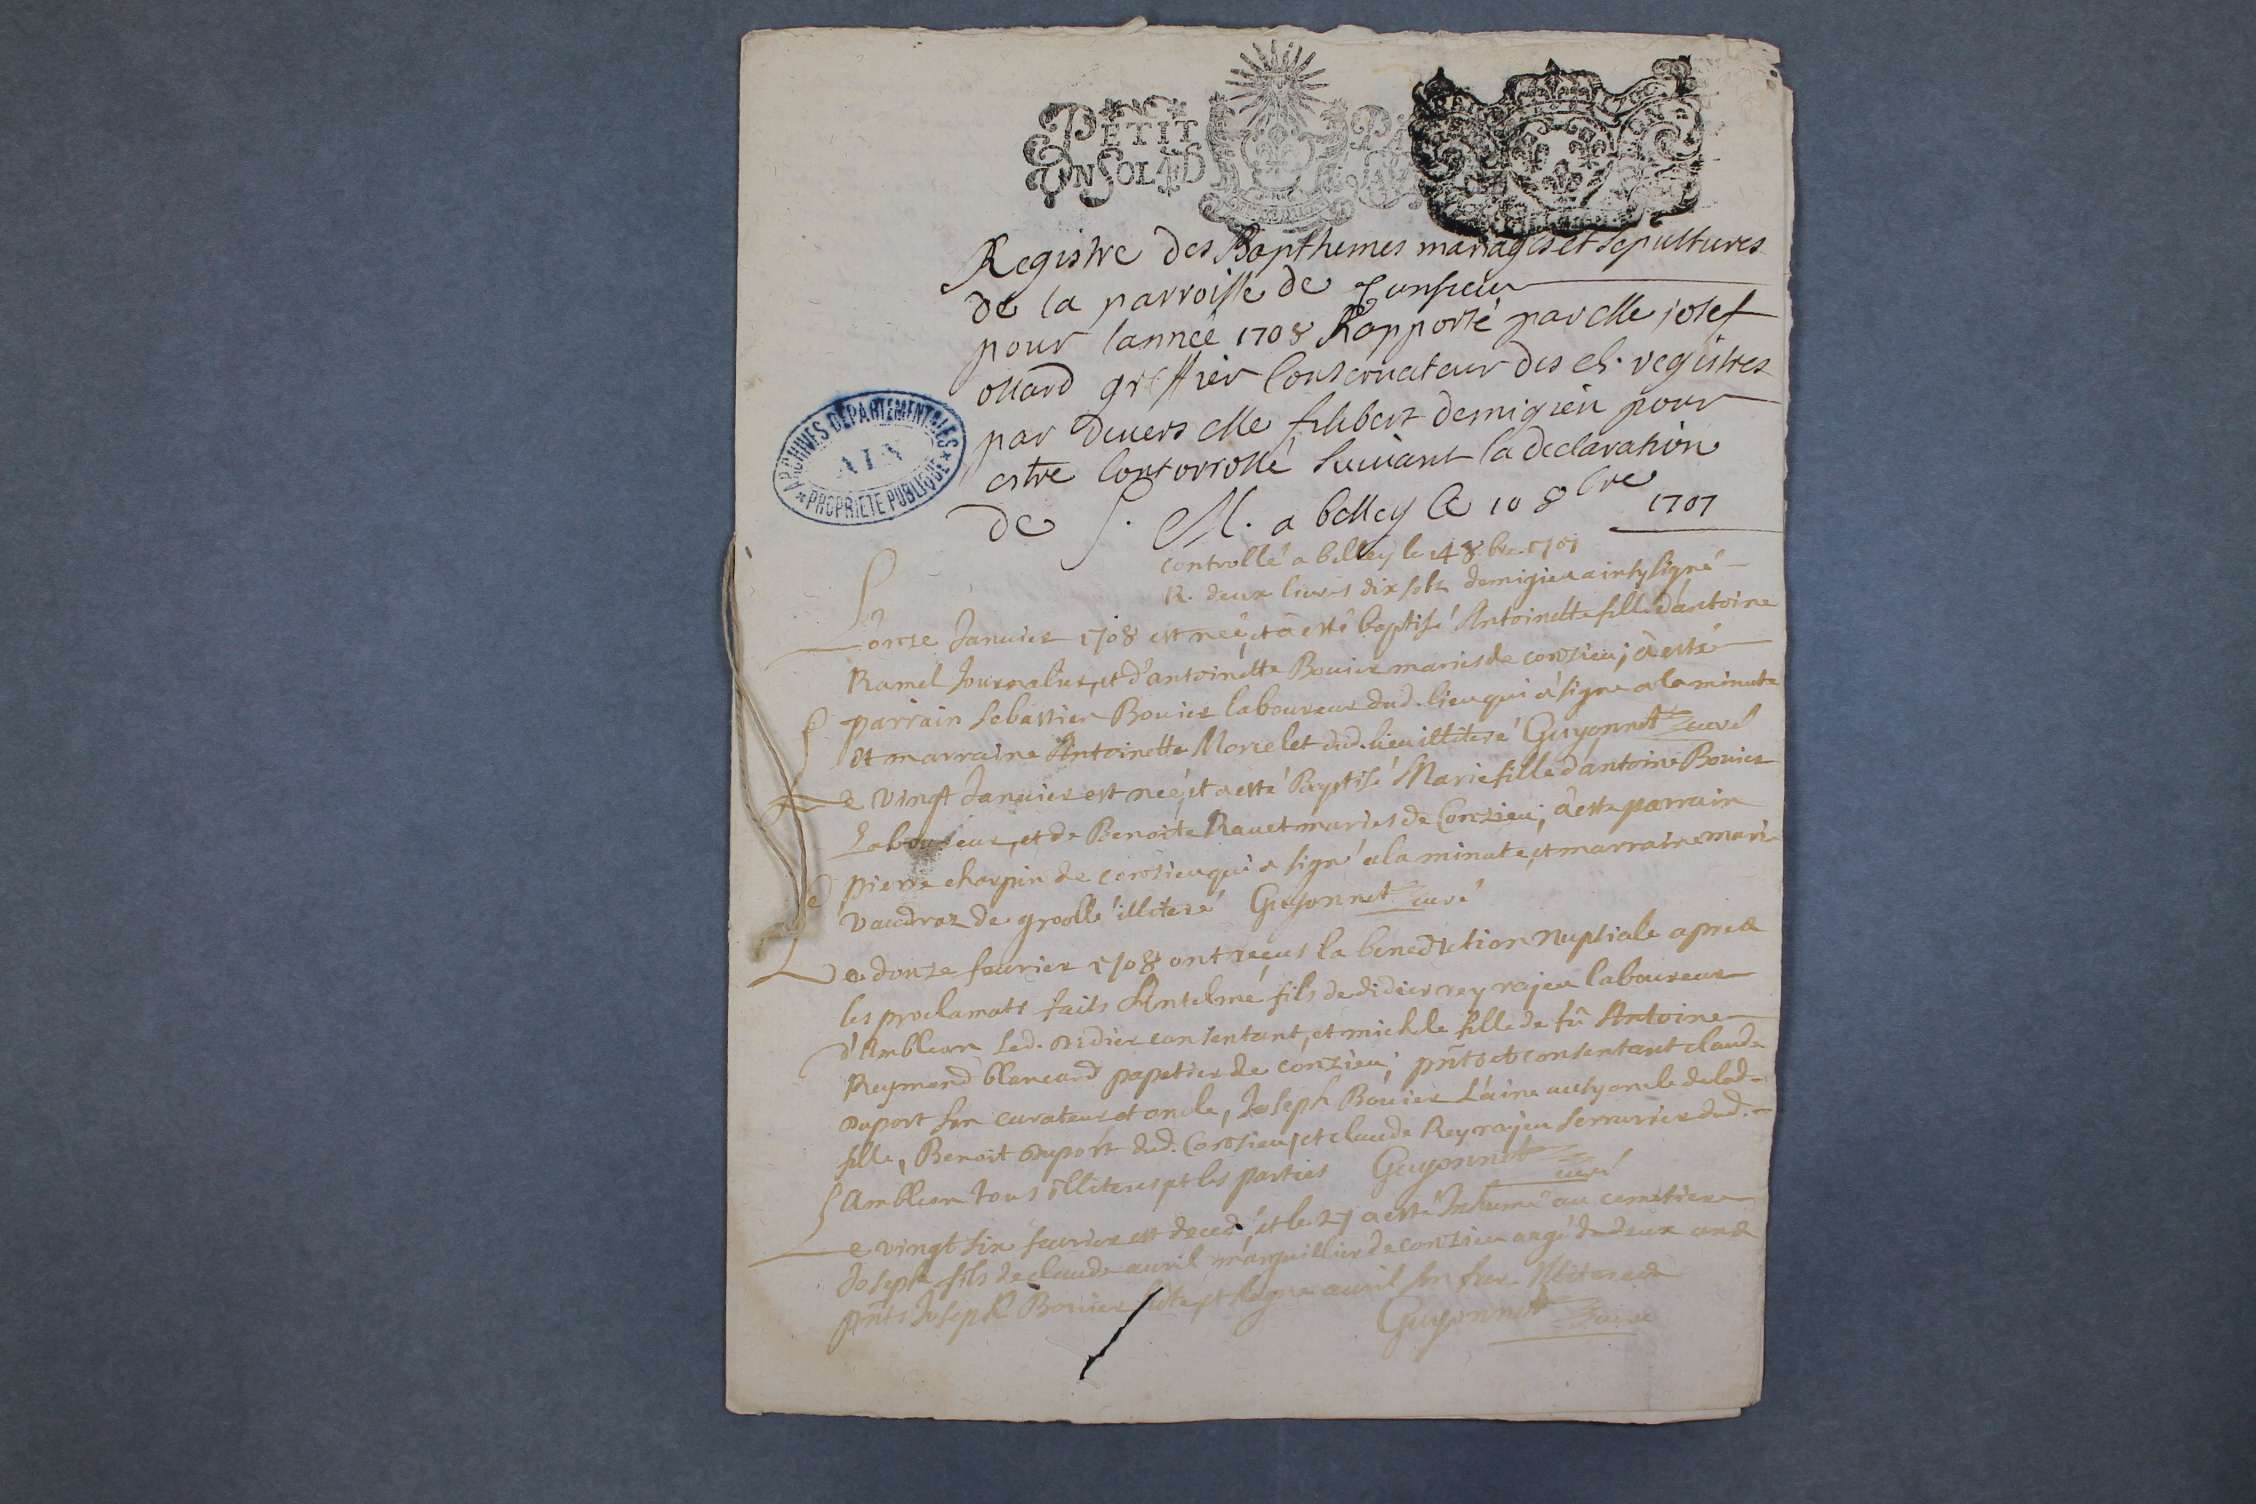 PETIT PA
UN SOL 4 D
Registre des Bapthemes mariages et sepultures
de la parroisse de Consieu
pour lannee 1708 Rapporté par Me josef
ollard greffier Conservateur des d. registres
par devers Me filibert demigieu pour
estre Contorrollé suivant la declaration
de S. M. a belley le 10 8bre 1707
ARCHIVES DEPARTEMENTALES
AIN
PROPRIETE PUBLIQUE
controllé a belley le 14 8.bre 1707
R. deux livres dix sols demigieu ainsy signé
L'onze Janvier 1708 est neé, et a esté baptisé Antoinette fille d'antoine
Ramel Journalier, et d'antoinette Bovier mariés de conzieu; a esté
parrain Sebastien Bovier laboureur dud. lieu qui a signe a la minute
et marraine Antoinette Morelet dud. lieu illiteré Guyonnet curé
Le vingt Janvier est neé, et a esté Baptisé Marie fille d'antoine Bovier
Laboureur, et de Benoite Ravet mariés de Conzieu; a esté parrain
pierre charpin de conzieu qui a signé a la minute, et marraine marie
vaudraz de groolle illiteré Guyonnet curé
Le douze fevrier 1708 ont reçus la benediction Nuptiale apres
les proclamats faits Antelme fils de didier rey rajeu laboureur
d'Ambleon led. didier consentant, et michele fille de fû Antoine
Reymond blancard papetier de conzieu; pnts et consentant claude
duport son curateur et oncle, Joseph Bovier L'ainé aussy oncle de lad.
fille, Benoit duport dud. Conzieu, et claude Rey rajeu serrurier dud.
Ambleon tous illiteres, et les parties Guyonnet curé
Le vingt six fevrier est decedé, et le 27 a esté Inhumé au cemetiere
Joseph fils de claude avril marguillier de conzieu aagé de deux ans
pnts Joseph Bovier avril son frere Illiteres
Guyonnet curé